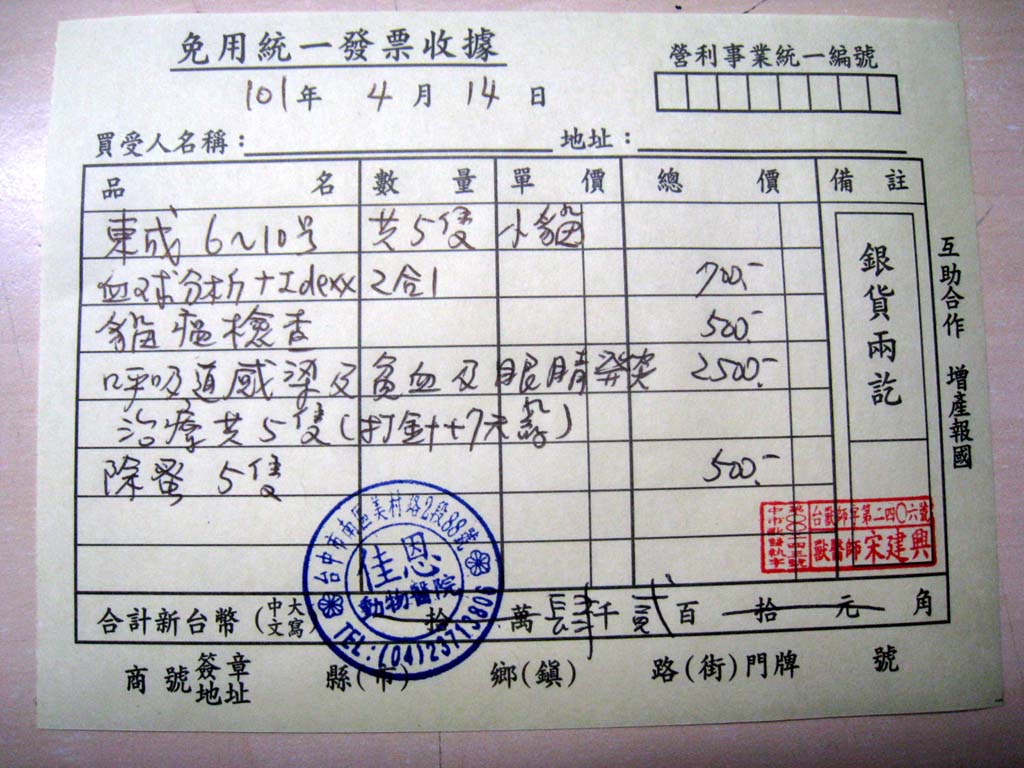 免用統一發票收據
營利事業統一編號
101年 4月 14日
買受人名稱： 地址：
品名 數量 單價 總價 備註
東成 6~10号 共5隻 小貓
血球分析+Idexx 2合1 700.-
貓瘟檢查 500.-
呼吸道感染及貧血及眼睛發炎 2500.-
治療共5隻(打針+7天藥)
除蚤 5隻 500.-
銀貨兩訖
互助合作 增產報國
台獸師字第二四〇六號
獸醫師宋建興
台中市南區美村路2段88號
佳恩
動物醫院
TEL:(04)23713806
合計新台幣(中文大寫) 拾 萬 肆千 貳百 拾 元 角
商號簽章地址 縣(市) 鄉(鎮) 路(街)門牌 號